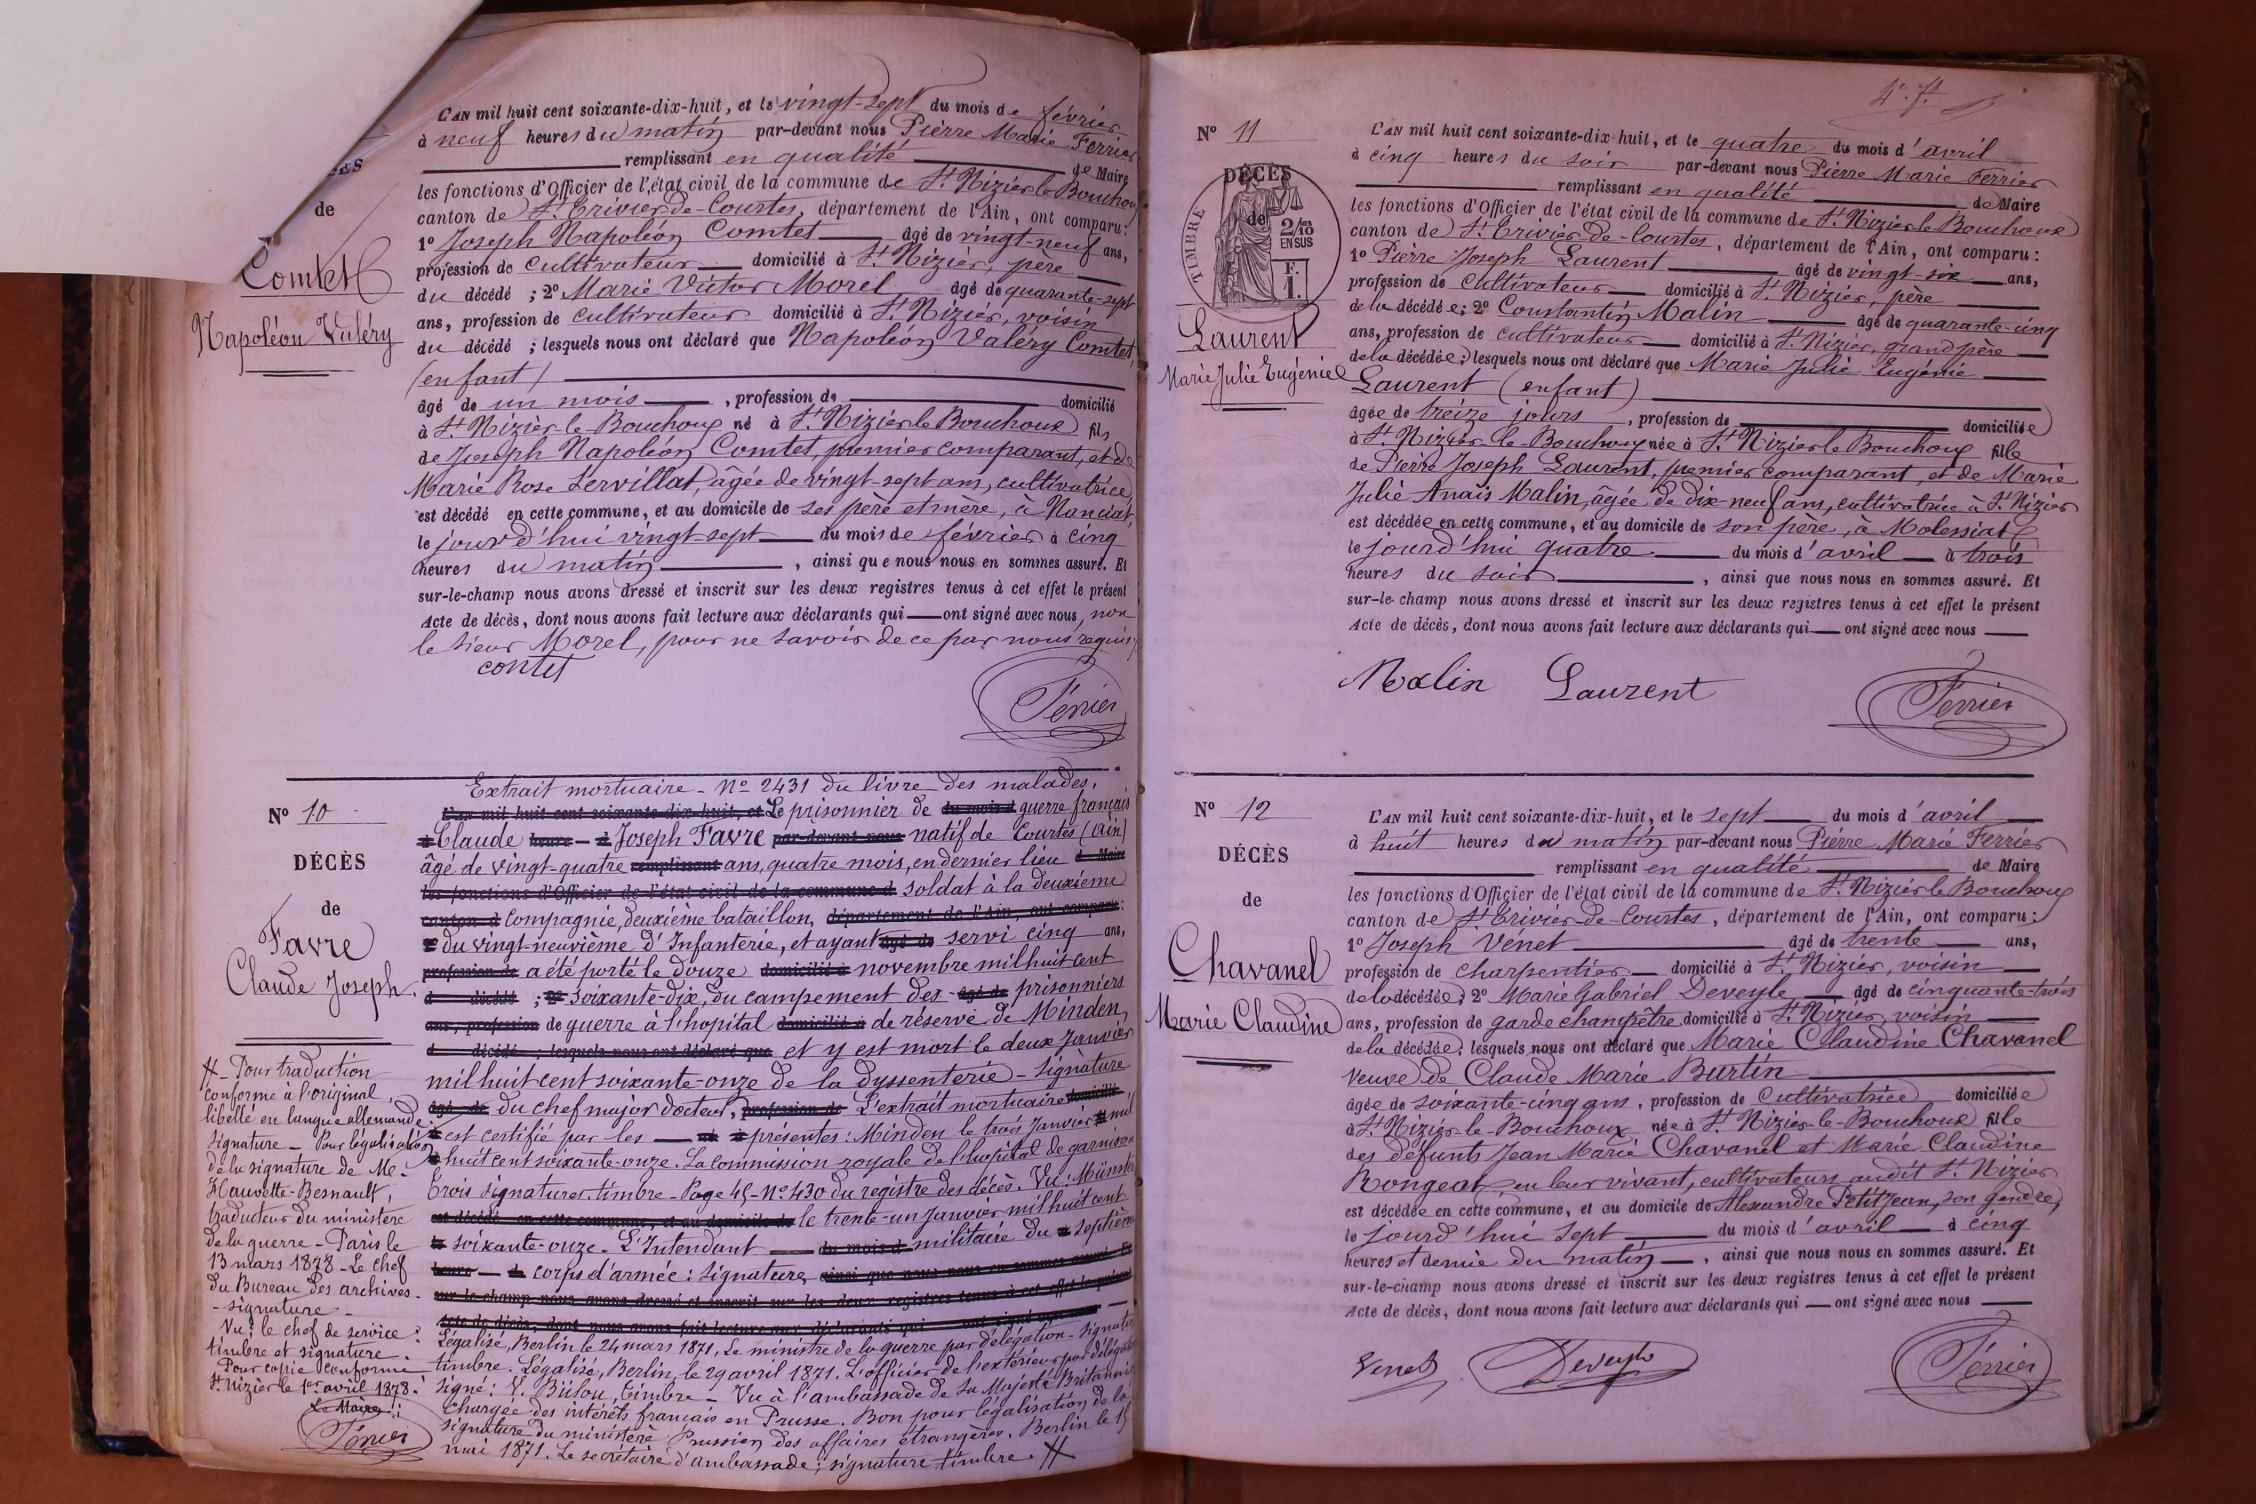 DÉCÈS
de
Comtet
Napoléon Valéry
L'AN mil huit cent soixante-dix-huit, et le vingt-sept du mois de février
à neuf heures du matin par-devant nous Pierre Marie Ferrier
remplissant en qualité de Maire
les fonctions d'Officier de l'état civil de la commune de St Nizier le Bouchoux
canton de St Trivier-de-Courtes, département de l'Ain, ont comparu:
1º Joseph Napoléon Comtet âgé de vingt-neuf ans,
profession de cultivateur domicilié à St Nizier, père
du décédé ; 2º Marie Victor Morel âgé de quarante-sept
ans, profession de cultivateur domicilié à St Nizier, voisin
du décédé ; lesquels nous ont déclaré que Napoléon Valéry Comtet,
(enfant)
âgé de un mois , profession de domicilié
à St Nizier-le-Bouchoux né à St Nizier le Bouchoux fils
de Joseph Napoléon Comtet, premier comparant, et de
Marie Rose Servillat, âgée de vingt-sept ans, cultivatrice,
est décédé en cette commune, et au domicile de ses père et mère, à Nanciat,
le jour d'hui vingt-sept du mois de février à cinq
heures du matin , ainsi que nous nous en sommes assuré. Et
sur-le-champ nous avons dressé et inscrit sur les deux registres tenus à cet effet le présent
Acte de décès, dont nous avons fait lecture aux déclarants qui ont signé avec nous, non
le sieur Morel, pour ne savoir de ce par nous requis
contet
Ferrier
Nº 10
DÉCÈS
de
Favre
Claude Joseph.
Extrait mortuaire - Nº 2431 du livre des malades.
L'an mil huit cent soixante-dix-huit, et Le prisonnier de du mois d guerre français
à Claude heure à Joseph Favre par-devant nous natif de Courtes (Ain)
âgé de vingt-quatre remplissant ans, quatre mois, en dernier lieu d Maire
les fonctions d'Officier de l'état civil de la commune d soldat à la deuxième
canton d Compagnie, deuxième bataillon, département de l'Ain, ont comparu:
du vingt-neuvième d'Infanterie, et ayant âgé de servi cinq ans,
profession de a été porté le douze domicilié à novembre mil huit cent
d décédé ; 2º soixante-dix, du campement des âgé de prisonniers
ans, profession de guerre à l'hopital domicilié à de réserve de Minden,
d décédé ; lesquels nous ont déclaré que et y est mort le deux Janvier
mil huit cent soixante-onze de la dyssenterie - Signature
âgé de du chef major docteur, profession de L'extrait mortuaire domicilié
est certifié par les présentes: Minden le trois Janvier mil
huit cent soixante-onze. La commission royale de l'hopital de garnison
Trois signatures. timbre - Page 45 - Nº 430 du registre des décès. Vu: Münster
est décédé en cette commune, et au domicile de le trente-un Janvier mil huit cent
le soixante-onze. L'Intendant du mois d militaire du septième
heure corps d'armée: Signature, ainsi que nous nous en sommes assuré. Et
sur-le-champ nous avons dressé et inscrit sur les deux registres tenus à cet effet le présent
Acte de décès, dont nous avons fait lecture aux déclarants qui ont signé avec nous
Légalisé, Berlin le 24 mars 1871. Le ministre de la guerre par délégation - Signature
timbre. Légalisé, Berlin, le 29 avril 1871. L'officier de l'extérieur par délégation
Signé: V. Bülou, timbre - Vu à l'ambassade de Sa Majesté Britannique
Chargée des intérêts français en Prusse. Bon pour légalisation de la
signature du ministère Prussien des affaires étrangères. Berlin le 15
mai 1871. Le secrétaire d'ambassade; signature timbre. #
# - Pour traduction
conforme à l'original,
libellé en langue allemande.
Signature - Pour légalisation
de la signature de Mr
Hauvette-Besnault,
traducteur du ministère
de la guerre - Paris le
13 mars 1878 - Le chef
du Bureau des archives -
- signature -
Vu: le chef de service:
timbre et signature.
Pour copie conforme
St Nizier le 1er avril 1878.
Le Maire:
Ferrier
4e ft
Nº 11
DÉCÈS
de
TIMBRE
2/10
EN SUS
F.
1.
Laurent
Marie Julie Eugénie
L'AN mil huit cent soixante-dix-huit, et le quatre du mois d'avril
à cinq heures du soir par-devant nous Pierre Marie Ferrier
remplissant en qualité de Maire
les fonctions d'Officier de l'état civil de la commune de St Nizier le Bouchoux
canton de St Trivier-de-Courtes, département de l'Ain, ont comparu:
1º Pierre Joseph Laurent âgé de vingt-six ans,
profession de cultivateur domicilié à St Nizier, père
de la décédée; 2º Constantin Malin âgé de quarante-cinq
ans, profession de cultivateur domicilié à St Nizier, grand père
de la décédée; lesquels nous ont déclaré que Marie Julie Eugénie
Laurent (enfant)
âgée de treize jours , profession de domiciliée
à St Nizier-le-Bouchoux née à St Nizier le Bouchoux fille
de Pierre Joseph Laurent, premier comparant, et de Marie
Julie Anaïs Malin, âgée de dix-neuf ans, cultivatrice à St Nizier
est décédée en cette commune, et au domicile de son père, à Molessiat
le jourd'hui quatre du mois d'avril à trois
heures du soir , ainsi que nous nous en sommes assuré. Et
sur-le-champ nous avons dressé et inscrit sur les deux registres tenus à cet effet le présent
Acte de décès, dont nous avons fait lecture aux déclarants qui ont signé avec nous
Malin Laurent
Ferrier
Nº 12
DÉCÈS
de
Chavanel
Marie Claudine
L'AN mil huit cent soixante-dix-huit, et le sept du mois d'avril
à huit heures du matin par-devant nous Pierre Marie Ferrier
remplissant en qualité de Maire
les fonctions d'Officier de l'état civil de la commune de St Nizier le Bouchoux
canton de St Trivier-de-Courtes, département de l'Ain, ont comparu:
1º Joseph Vénet âgé de trente ans,
profession de charpentier domicilié à St Nizier, voisin
de la décédée; 2º Marie Gabriel Deveyle âgé de cinquante-trois
ans, profession de garde champêtre domicilié à St Nizier, voisin
de la décédée; lesquels nous ont déclaré que Marie Claudine Chavanel
Veuve de Claude Marie Burtin
âgée de soixante-cinq ans, profession de Cultivatrice domiciliée
à St Nizier-le-Bouchoux née à St Nizier-le-Bouchoux fille
des défunts Jean Marie Chavanel et Marie Claudine
Rongeat, en leur vivant, cultivateurs audit St Nizier
est décédée en cette commune, et au domicile de Alexandre Petitjean, son gendre,
le jourd'hui Sept du mois d'avril à cinq
heures et demie du matin , ainsi que nous nous en sommes assuré. Et
sur-le-champ nous avons dressé et inscrit sur les deux registres tenus à cet effet le présent
Acte de décès, dont nous avons fait lecture aux déclarants qui ont signé avec nous
Venet Deveyle
Ferrier